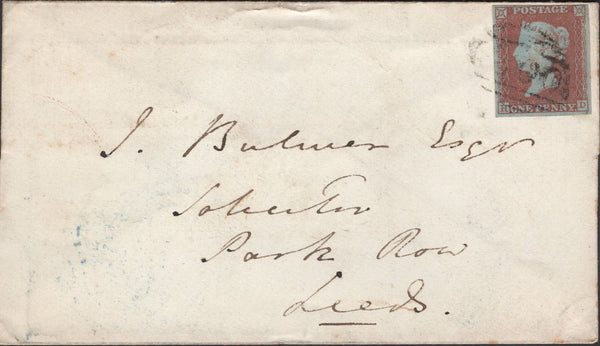 POSTAGE
ONE PENNY
D
J. Bulmer Esqr
Solicitor
Park Row
Leeds.